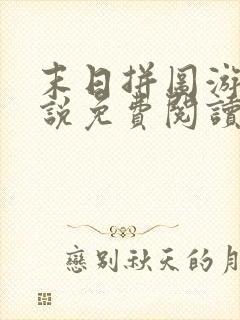 末日拼圖游
說免費閱讀
戀別秋天的月